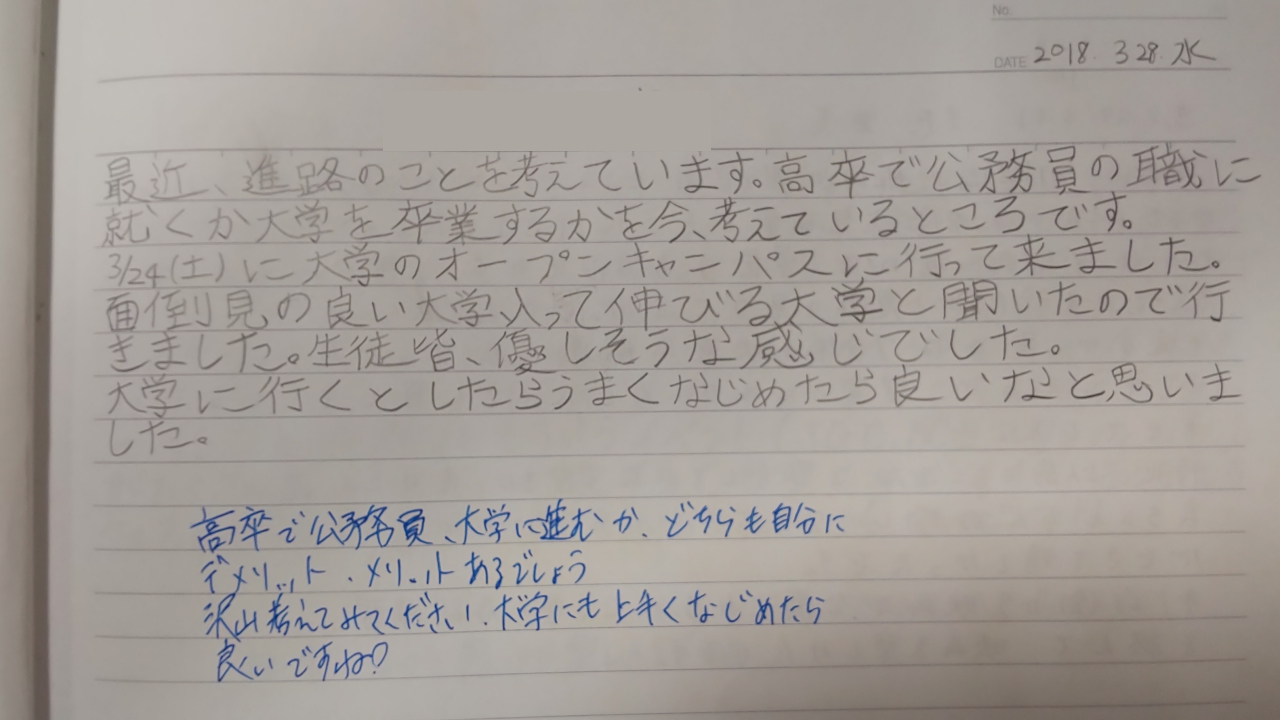 No.
DATE 2018. 3 28. 水
最近、進路のことを考えています。高卒で公務員の職に
就くか大学を卒業するかを今、考えているところです。
3/24(土)に大学のオープンキャンパスに行って来ました。
面倒見の良い大学入って伸びる大学と聞いたので行
きました。生徒皆、優しそうな感じでした。
大学に行くとしたらうまくなじめたら良いなと思いま
した。
高卒で公務員、大学に進むか、どちらも自分に
デメリット、メリットあるでしょう
沢山考えてみてください。大学にも上手くなじめたら
良いですね?